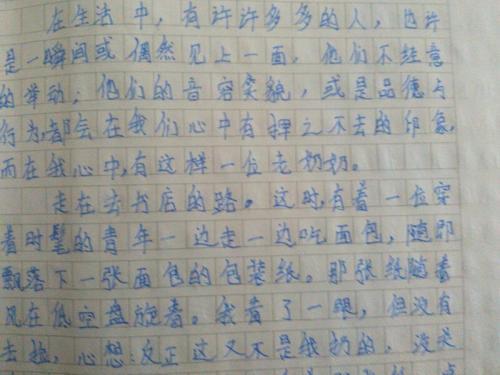 在生活中，有许许多多的人，也许
是一瞬间或偶然见上一面，他们不经意
的举动；他们的音容笑貌，或是品德与
行为，都会在我们心中有挥之不去的印象，
而在我心中，有这样一位老奶奶。
走在去书店的路。这时，有着一位穿
着时髦的青年一边走一边吃面包，随即
飘落下一张面包的包装纸。那张纸随着
风在低空盘旋着。我看了一眼，但没有
去拉，心想：反正这又不是我扔的，没关